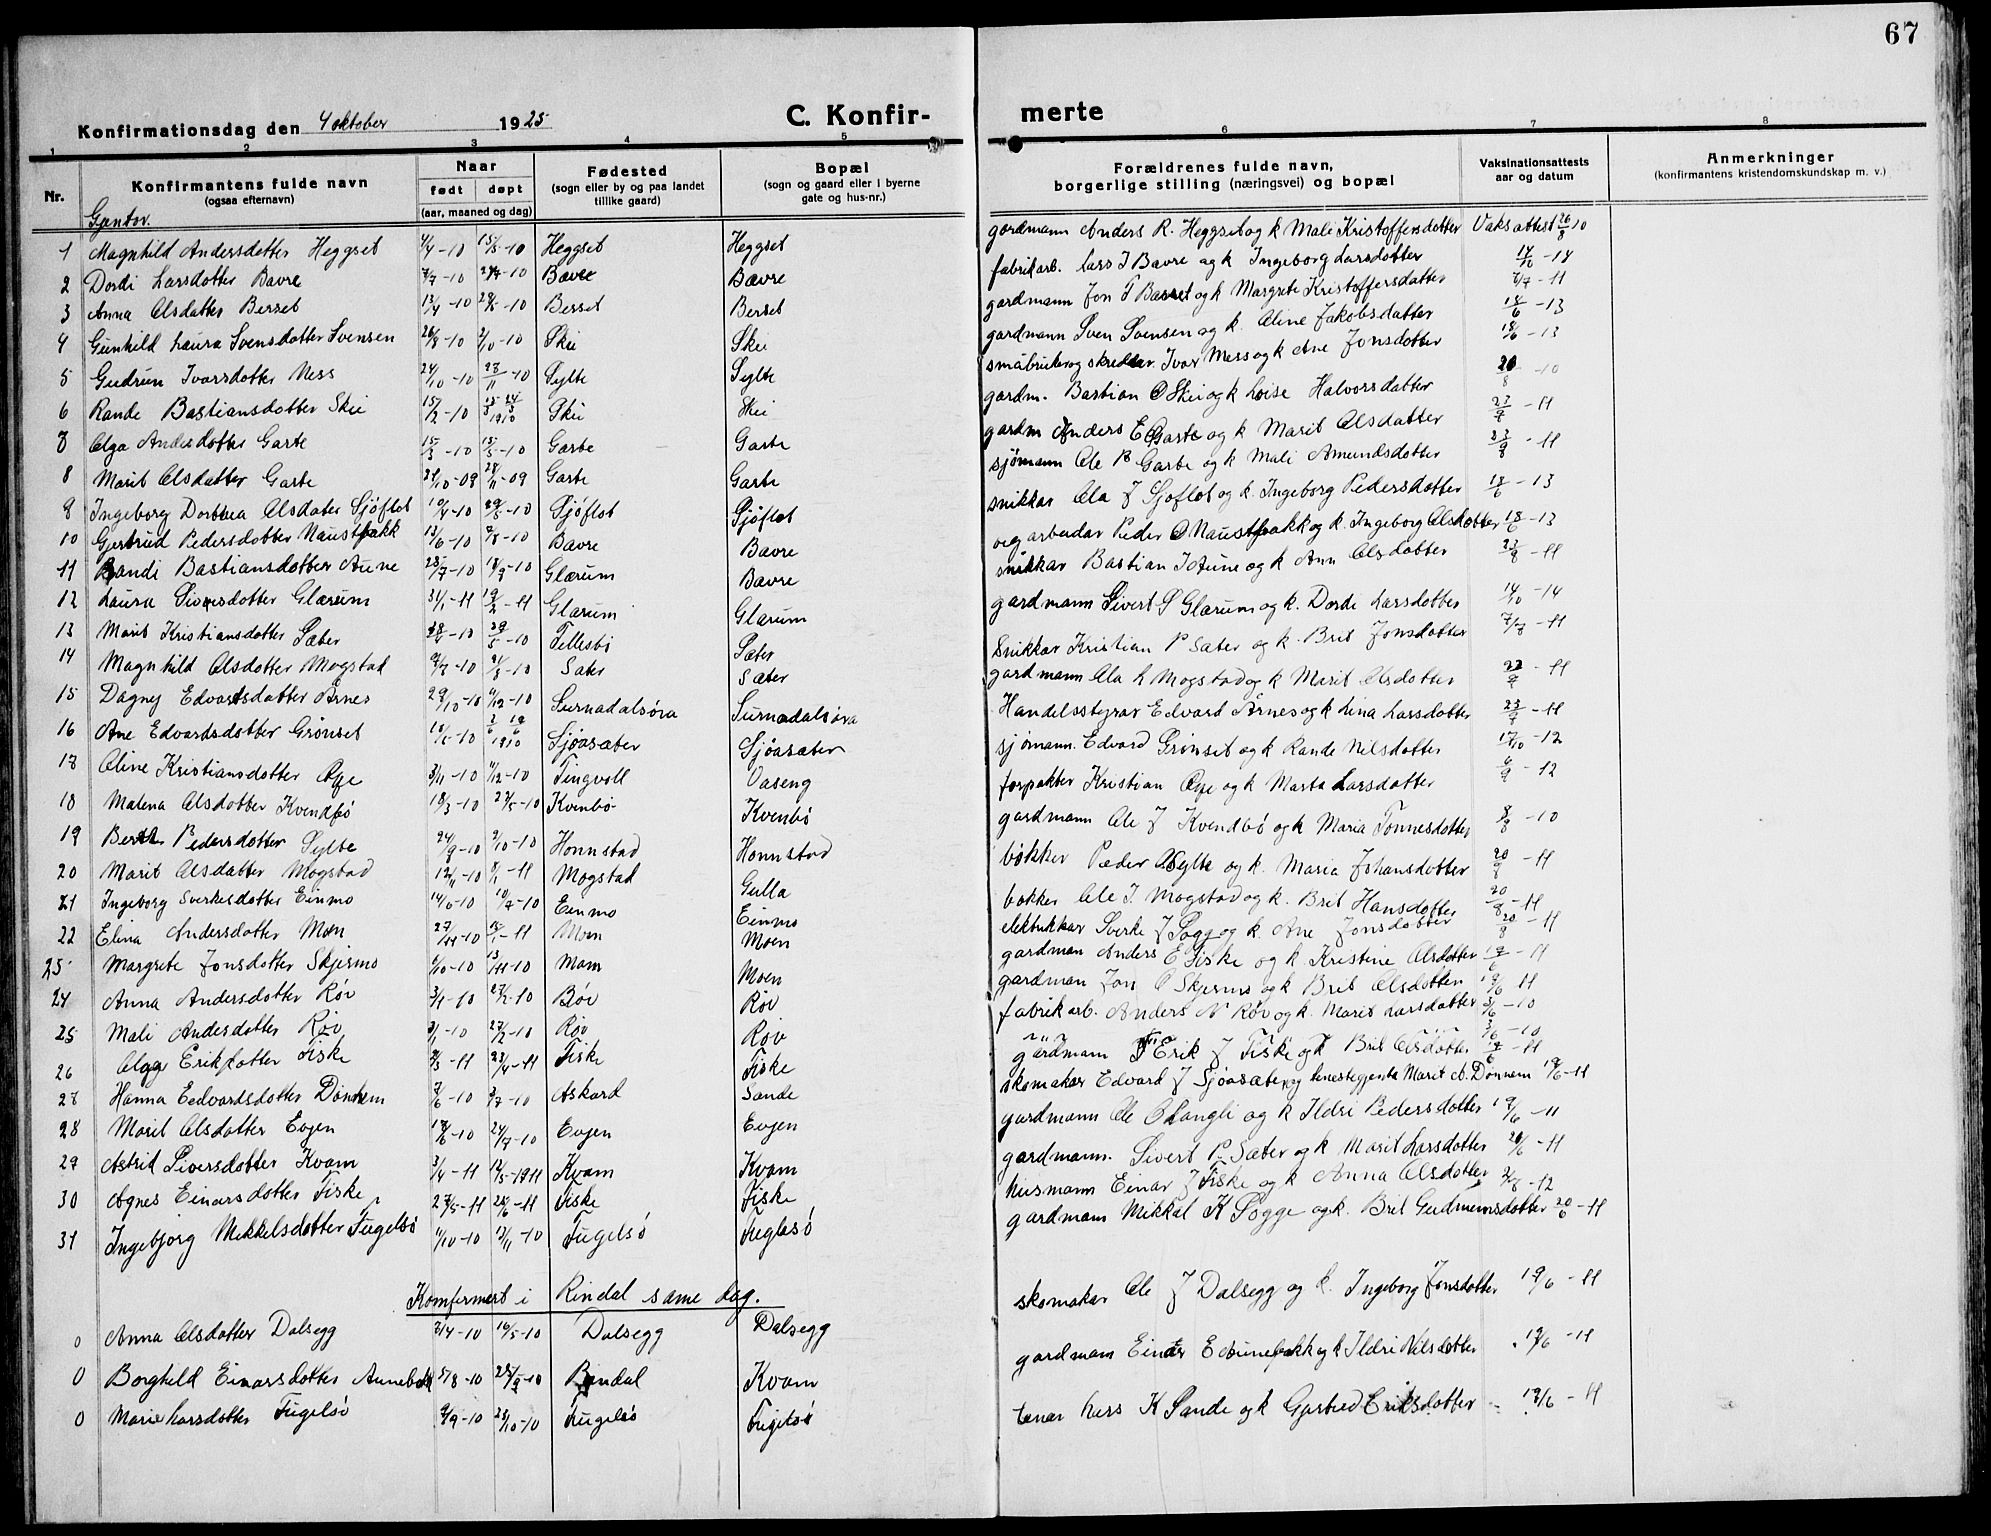 67
Konfirmationsdag den 4 oktober 1925 C. Konfir- merte
1 2 3 4 5 6 7 8
Nr. Konfirmantens fulde navn (ogsaa efternavn) Naar født døpt (aar, maaned og dag) Fødested (sogn eller by og paa landet tillike gaard) Bopæl (sogn og gaard eller i byerne gate og hus-nr.) Forældrenes fulde navn, borgerlige stilling (næringsvei) og bopæl Vaksinationsattests aar og datum Anmerkninger (konfirmantens kristendomskundskap m. v.)
Gjentor.
1 Magnhild Andersdotter Heggset 4/4-10 15/5-10 Heggset Heggset gardmann Anders R. Heggset og k Mali Kristoffersdotter Vaksattest 26/8 10
2 Dordi Larsdotter Bævre 7/7-10 24/7-10 Bævre Bævre fabrikarb. Lars J Bævre og k Ingeborg Larsdotter 14/10-14
3 Anna Olsdatter Berset 13/4-10 29/5-10 Berset Berset gardmann Jon T Bærset og k Margrete Kristoffersdatter 7/7-11
4 Gunhild Laura Svensdotter Svensen 26/8-10 2/10-10 Skei Skei gardmann Sven Svensen og k. Aline Jakobsdatter 18/6-13
5 Gudrun Ivarsdotter Ness 24/10-10 28/11-10 Sylte Sylte småbruker og skreddar Ivar Ness og k Ane Jonsdotter 18/6-13
6 Rande Bastiansdotter Skei 15/2-10 Skei Skei gardm. Bastian O Skei og k Loise Halvorsdatter 20/8-10
7 Olga Andersdotter Garte 15/3-10 15/5-10 Garte Garte gardm Anders E Garte og k Marit Olsdatter 23/9-11
8 Marit Olsdatter Garte 28/11-09 Garte Garte sjømann Ole P Garte og k Mali Amundsdotter 23/9-11
9 Ingeborg Dorthea Olsdater Sjøflot 10/4-10 29/5-10 Sjøflot Sjøflot snikkar Ola J Sjoflot og k. Ingeborg Pedersdotter 18/6-13
10 Gjertrud Pedersdotter Naustbakk 13/6-10 7/8-10 Bævre Bævre vegarbeidar Peder O Naustbakk og k. Ingeborg Olsdotter 18/6-13
11 Randi Bastiansdotter Aune 25/7-10 18/9-10 Glærum Bævre snikkar Bastian J Aune og k Ann Olsdotter 23/9-11
12 Laura Siversdotter Glærum 31/1-11 19/2-11 Glærum Glærum gardmann Sivert S Glærum og k. Dordi Larsdotter 14/10-14
13 Marit Kristiansdotter Sæter 29/5-10 Tellesbø Sæter Snikkar Kristian P Sæter og k. Brit Jonsdotter 7/7-11
14 Magnhild Olsdotter Mogstad Sæter Sæter gardmann Ola L Mogstad og k Marit Olsdotter 23/9-11
15 Dagny Edvartsdatter Årnes 29/10-10 4/12-10 Surnadalsøra Surnadalsøra Handelsstyrar Edvard Årnes og k Lina Larsdotter 23/9-11
16 Ane Edvardsdotter Grønset Sjøasæter Sjøasæter sjømann. Edvard Grønset og k Rande Nilsdotter 17/10-12
17 Oline Kristiansdotter Øye 3/11-10 4/12-10 Tingvoll Vaseng forpakter Kristian Øye og k Marta Larsdotter 6/9-12
18 Malena Olsdotter Kvendbø 18/3-10 27/5-10 Kvenbø Kvenbø gardmann Ole J Kvendbø og k Maria Tønnesdotter 8/8-10
19 Berit Pedersdotter Sylte 24/8-10 2/10-10 Honnstad Honnstad bøkker Peder O Sylte og k. Maria Johansdotter 20/8-11
20 Marit Olsdatter Mogstad 12/11-10 8/1-11 Mogstad Gulla bøkker Ole J. Mogstad og k. Brit Hansdotter 20/8-11
21 Ingeborg Sverkesdotter Einmo 14/6-10 10/7-10 Einmo Einmo elektrikkar Sverke J Sogge og k. Ane Jonsdotter 20/8-11
22 Elina Andersdotter Moen 27/11-10 Moen Moen gardman Anders E Fiske og k Kristine Olsdotter 19/6-11
23 Margrete Jonsdotter Skjermo 6/10-10 13/11-10 Moen Moen gardman Jon O Skjermo og k Brit Olsdotter 19/6 11
24 Anna Andersdotter Røv 3/1-10 27/2-10 Røv Røv fabrikarb. Anders N Røv og k. Marit Larsdotter 3/6-10
25 Mali Andersdotter Røv 3/1-10 27/2-10 Røv Røv " " " 3/6-10
26 Olga Eriksdotter Fiske 2/3-11 23/4-11 Fiske Fiske gardmann Erik J Fiske og k Brit Olsdotter 19/6-11
27 Hanna Edvardsdotter Dønnem 7/6-10 3/7-10 Askard Sande skomaker Edvard J Sjøasæter og tenestegjenta Marit A. Dønnem 19/6-11
28 Marit Olsdatter Evjen 17/6-10 24/7-10 Evjen Evjen gardmann Ole O Langli og k Ildri Pedersdotter 19/6-11
29 Astrid Siversdotter Kvam 3/4-11 12/5-1911 Kvam Kvam gardmann. Sivert P. Sæter og k Marit Larsdotter 20/6-11
30 Agnes Einarsdotter Fiske 27/5-11 25/6-11 Fiske Fiske husmann Einar J Fiske og k Anna Olsdotter 2/8-12
31 Ingebjørg Mikkelsdotter Fugelsø 11/10-10 13/11-10 Fugelsø Fuglesø gardmann Mikkal K Sogge og k. Brit Gudmunsdotter 20/6-11
Komfirmert i Rindal same dag.
0 Anna Olsdotter Dalsegg 2/4-10 16/5-10 Dalsegg Dalsegg skomaker Ole J Dalsegg og k. Ingeborg Jonsdotter 19/6-11
0 Borghild Einarsdotter Aunebakk 5/8-10 25/9-10 Rindal Kvam gardmann Einar E Aunebakk og k Ildri Nilsdotter 19/6-11
0 Marie Larsdotter Fugelsø 9/9-10 23/10-10 Fugelsø Fugelsø tenar Lars K Sande og k Gjertrud Eriksdotter 19/6-11